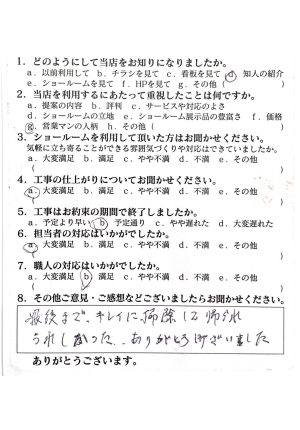 1．どのようにして当店をお知りになりましたか。
a．以前利用して b．チラシを見て c．看板を見て d．知人の紹介
e．ショールームを見て f．HPを見て g．その他( )
2．当店を利用するにあたって重視したことは何ですか。
a．提案の内容 b．評判 c．サービスや対応のよさ
d．ショールームの立地 e．ショールーム展示品の豊富さ f．価格
g．営業マンの人柄 h．その他( )
3．ショールームを利用して頂いた方はお聞かせください。
気軽に立ち寄ることができる雰囲気づくりや対応はできていましたか。
a．大変満足 b．満足 c．やや不満 d．不満 e．その他
( )
4．工事の仕上がりについてお聞かせください。
a．大変満足 b．満足 c．やや不満 d．不満 e．その他
( )
5．工事はお約束の期間で終了しましたか。
a．予定より早い b．予定通り c．やや遅れた d．大変遅れた
6．担当者の対応はいかがでしたか。
a．大変満足 b．満足 c．やや不満 d．不満 e．その他
( )
7．職人の対応はいかがでしたか。
a．大変満足 b．満足 c．やや不満 d．不満 e．その他
( )
8．その他ご意見・ご感想などございましたらお聞かせください。
最後まで、キレイに掃除して帰られ
うれしかった、ありがとうございました
ありがとうございます。